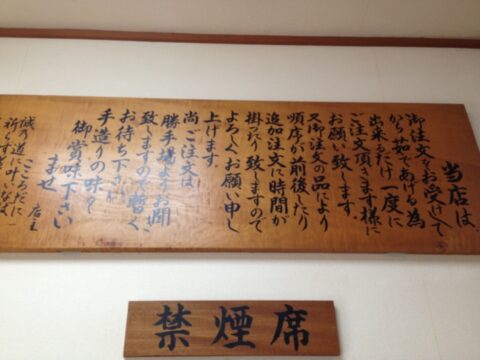 当店は、
御注文をお受けして
から茹であげる為
出来るだけ一度に
ご注文頂きます様に
お願い致します。
又御注文の品により
順序が前後したり
追加注文に時間が
掛ったり致しますので
よろしくお願い申し
上げます。
尚ご注文は
勝手場よりお聞
致しますので暫く
お待ち下さい
手造りの味を
御賞味下さい
ませ
店主
こころだに
誠の道に叶いなば
祈らずと
禁煙席